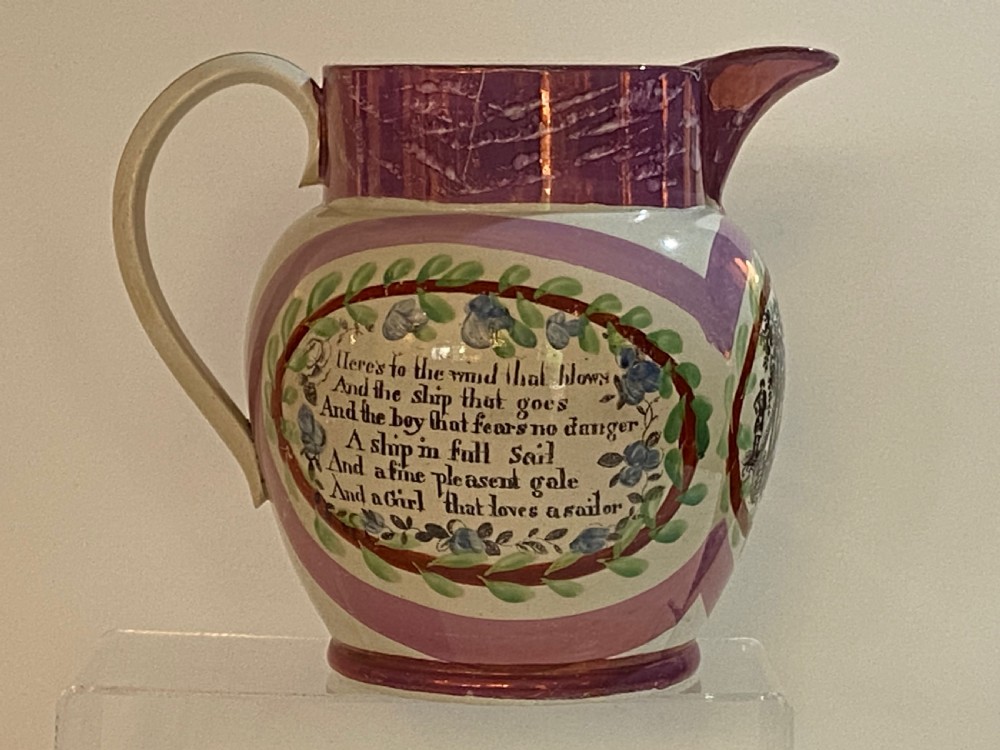 Here's to the wind that blows
And the ship that goes
And the boy that fears no danger
A ship in full Sail
And a fine pleasent gale
And a Girl that loves a sailor